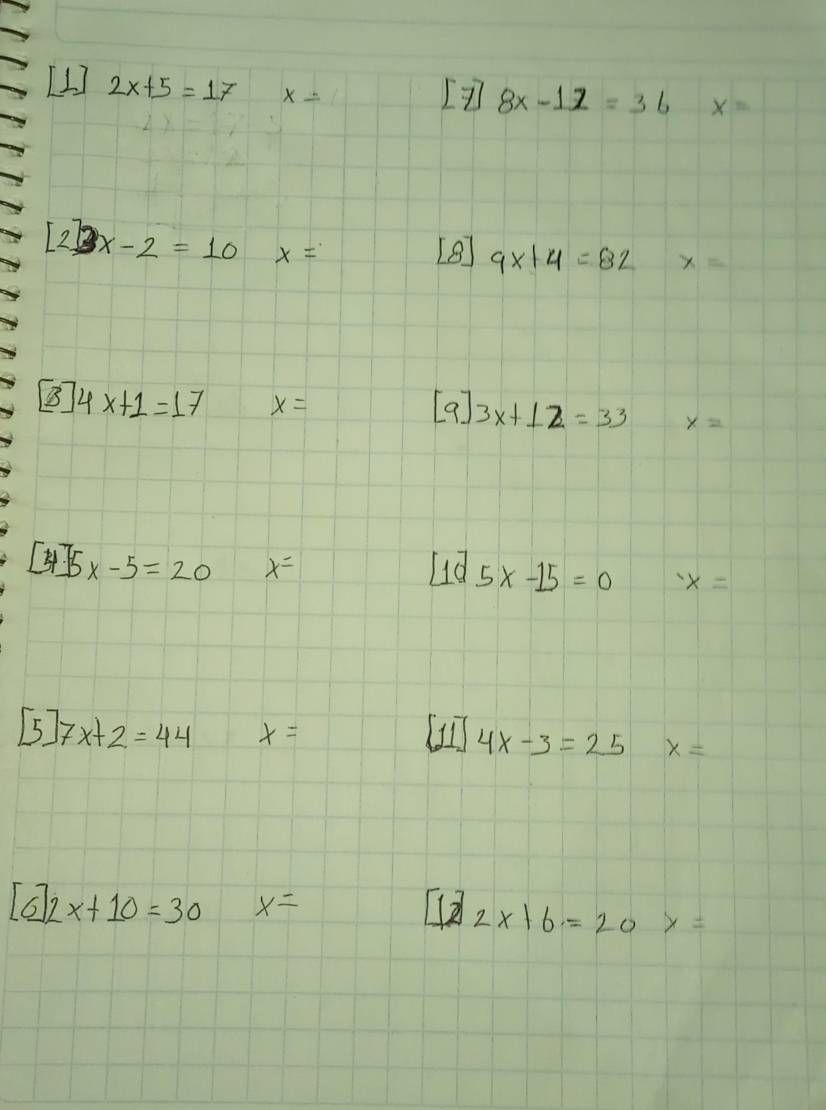 [1] 2x+5=17 x=
[2] 3x-2=10 x=
[3] 4x+1=17 x=
[4] 5x-5=20 x=
[5] 7x+2=44 x=
[6] 2x+10=30 x=
[7] 8x-12=36 x=
[8] 9x+4=82 x=
[9] 3x+12=33 x=
[10] 5x-15=0 x=
[11] 4x-3=25 x=
[12] 2x+6=20 x=